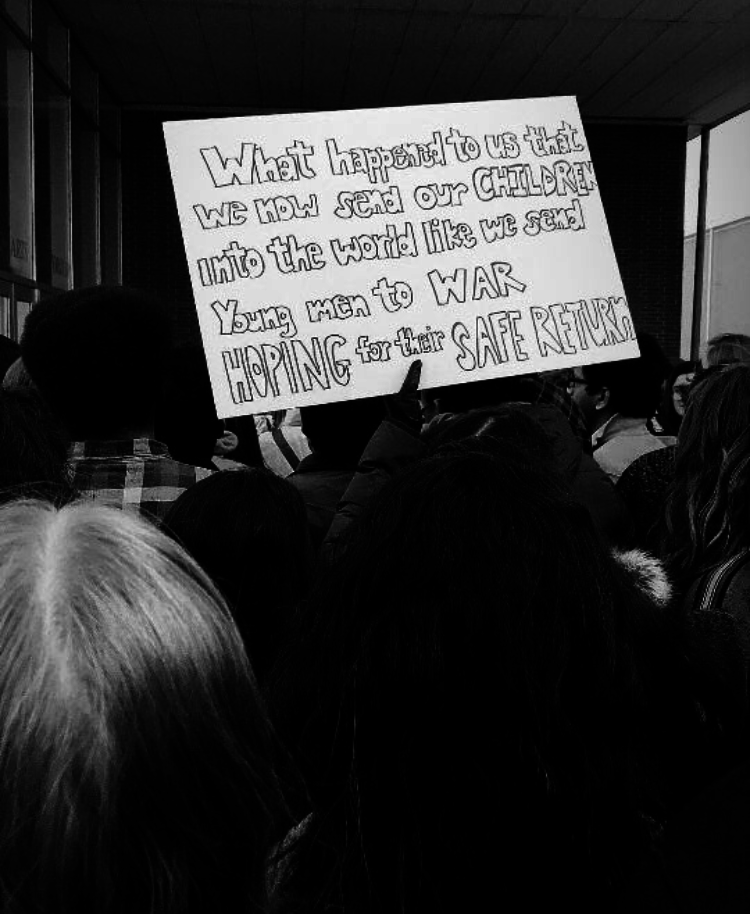 What happened to us that
we now send our CHILDREN
into the world like we send
Young men to WAR
HOPING for their SAFE RETURN